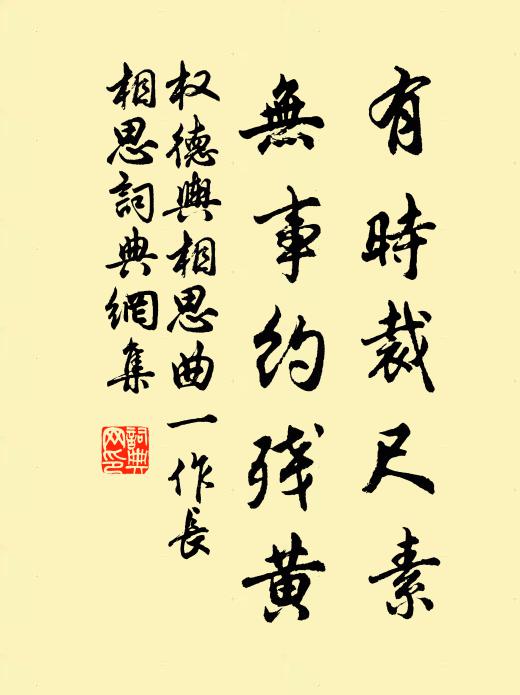 有時裁尺素
無事約残黄
权德輿相思曲一作長
相思詞典網集
詞典
网印